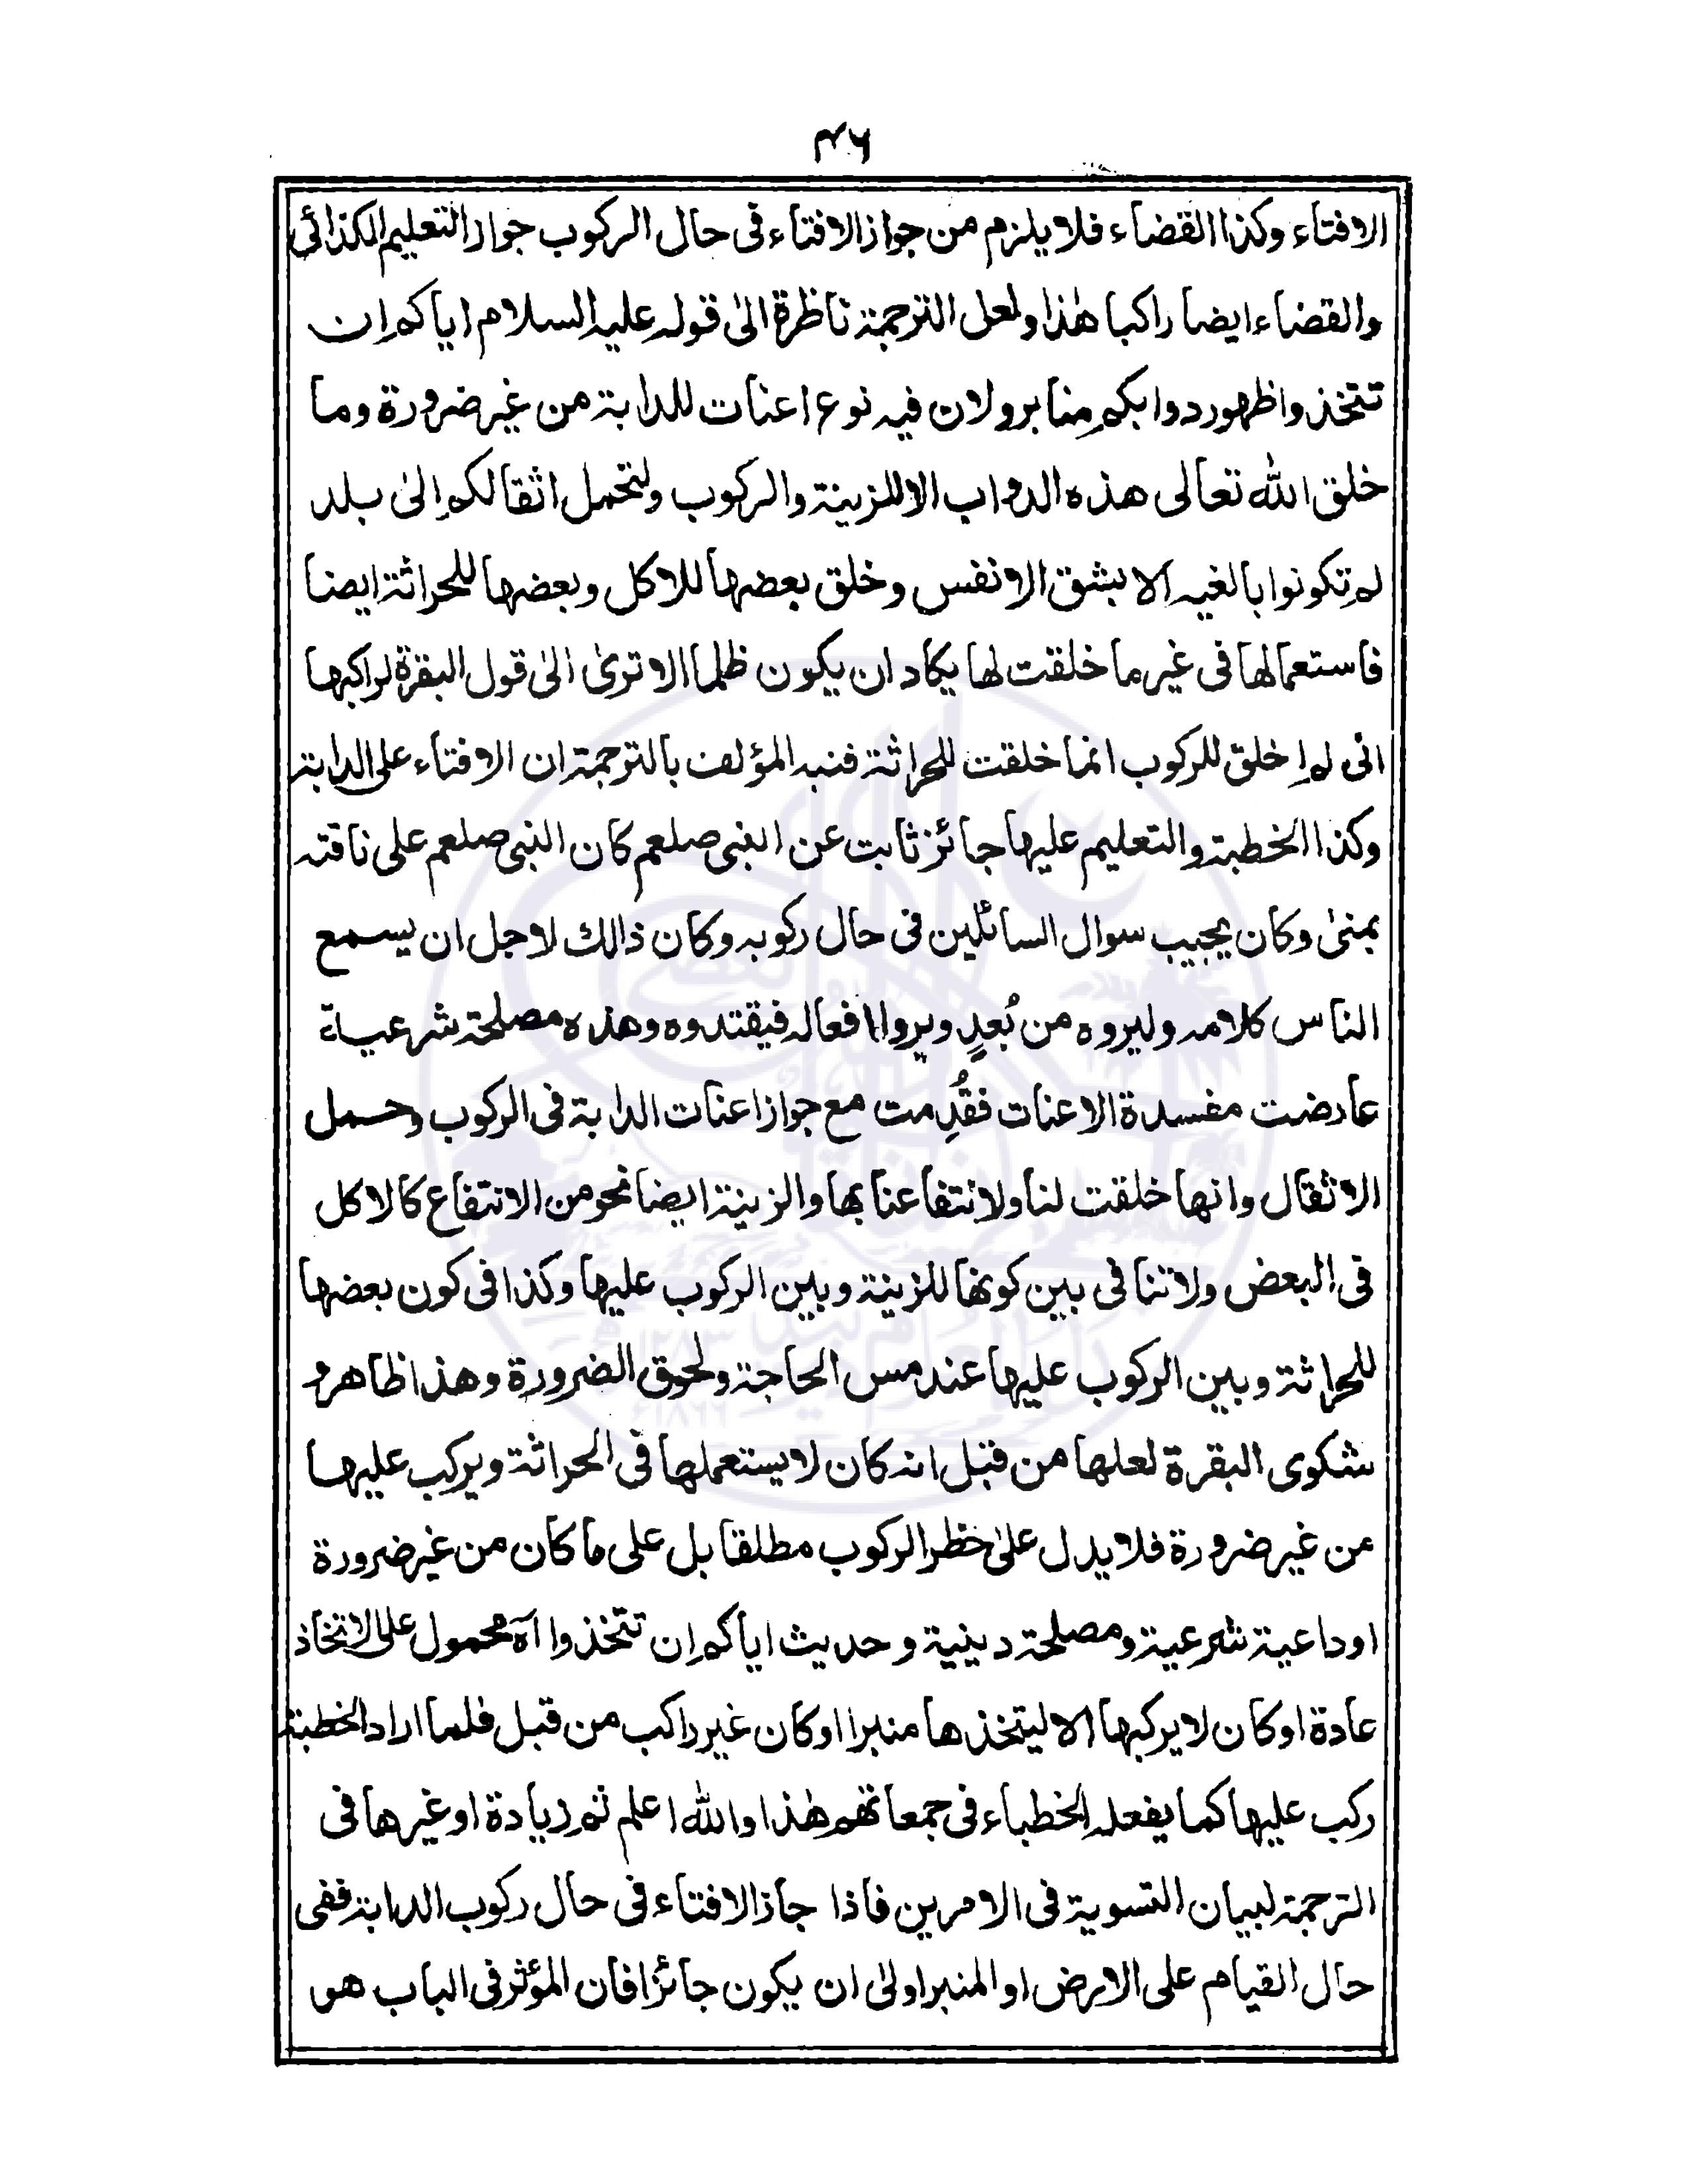 ۴۶
الافتاء وكذا القضاء فلا يلزم من جواز الافتاء فى حال الركوب جواز التعليم الكذائى
والقضاء ايضا راكبا هٰذا ولعل الترجمة ناظرة الىٰ قوله عليه السلام اياكم ان
تتخذ واظهور دوابكم منابر ولان فيه نوع اعنات للدابة من غير ضرورة وما
خلق الله تعالى هذه الدواب الا للزينة والركوب ولتحمل اثقالكم الىٰ بلد
لم تكونوا بالغيه الا بشق الانفس وخلق بعضها للاكل وبعضها للحراثة ايضا
فاستعمالها فى غير ما خلقت لها يكاد ان يكون ظلما الا ترىٰ الىٰ قول البقرة لراكبها
انى لم اخلق للركوب انما خلقت للحراثة فنبه المؤلف بالترجمة ان الافتاء على الدابة
وكذا الخطبة والتعليم عليها جائز ثابت عن النبى صلعم كان النبى صلعم على ناقته
بمنىٰ وكان يجيب سوال السائلين فى حال ركوبه وكان ذالك لاجل ان يسمع
الناس كلامه وليروه من بُعدٍ ويروا افعاله فيقتدوه وهذه مصلحة شرعية
عارضت مفسدة الاعنات فقُدِمت مع جواز اعنات الدابة فى الركوب وحمل
الاثقال وانها خلقت لنا ولانتفاعنا بها والزينة ايضا نحو من الانتفاع كالاكل
فى البعض ولا تنافى بين كونها للزينة وبين الركوب عليها وكذا فى كون بعضها
للحراثة وبين الركوب عليها عند مس الحاجة ولحوق الضرورة وهذا ظاهر و
شكوى البقرة لعلها من قبل انه كان لا يستعملها فى الحراثة ويركب عليها
من غير ضرورة فلا يدل علىٰ حظر الركوب مطلقا بل على ما كان من غير ضرورة
او داعية شرعية ومصلحة دينية و حديث اياكم ان تتخذوا آه محمول على الاتخاذ
عادة او كان لا يركبها الا ليتخذها منبرا او كان غير راكب من قبل فلما اراد الخطبة
ركب عليها كما يفعله الخطباء فى جمعاتهم هٰذا والله اعلم ثم زيادة او غيرها فى
الترجمة لبيان التسوية فى الامرين فاذا جاز الافتاء فى حال ركوب الدابة ففى
حال القيام على الارض او المنبر اولىٰ ان يكون جائزا فان المؤثر فى الباب هو